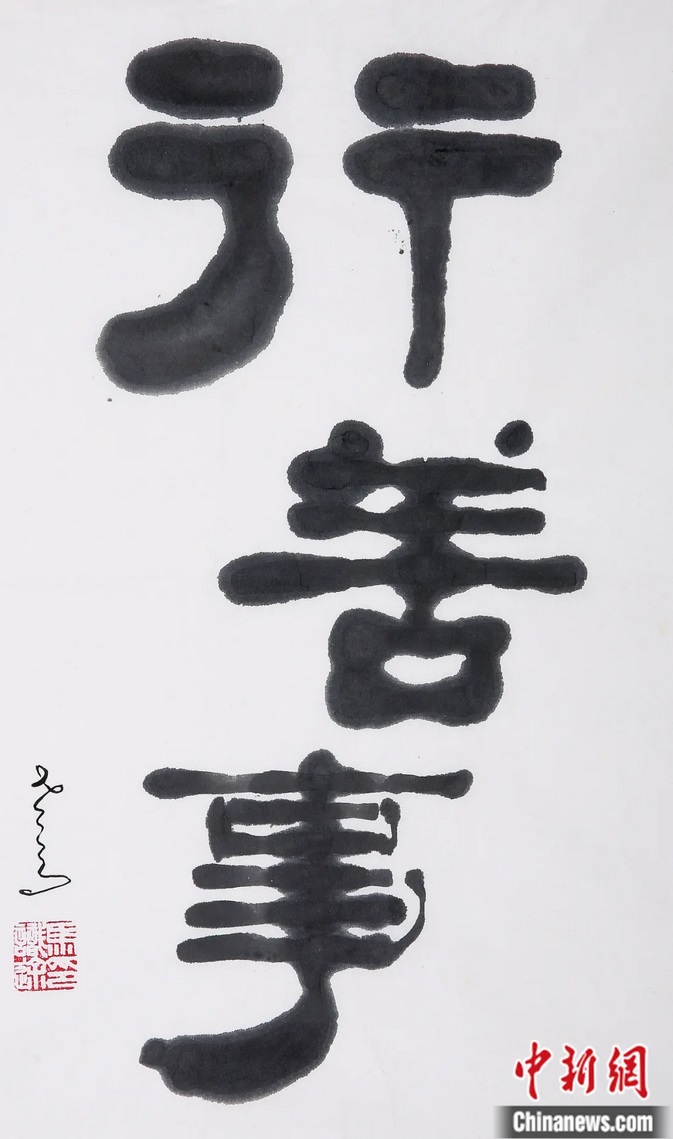 行
善
事
中新网
Chinanews.com